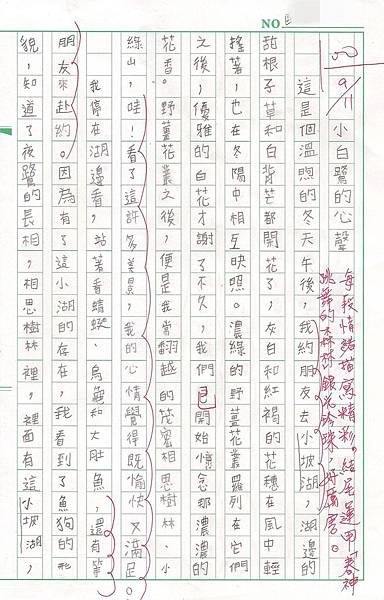 NO
100
9/11
小白鷺的心聲
這是個溫煦的冬天午後，我約朋友去小坡湖，湖邊的
甜根子草和白背芒都開花了，灰白和紅褐的花穗在風中輕
搖著，也在冬陽中相互映照。濃綠的野薑花叢羅列在它們
之後，優雅的白花才謝了不久，我們已開始憶念那濃濃的
花香。野薑花叢之後，便是我常翻越的茂密相思樹林、小
綠山，哇！看了這許多美景，我的心情覺得既愉快又滿足。
我停在湖邊看，站著看蜻蜓、烏龜和大肚魚，還有等
朋友來赴約。因為有了這小湖的存在，我看到了魚狗的形
貌，知道了夜鷺的長相，相思樹林裡，裡面有這小坡湖，
每段情緒描寫精彩。結尾運用
跳舞的森林 銀光 好厲害。